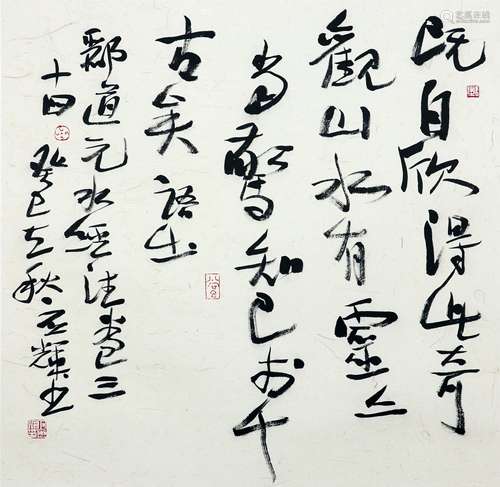 既自欣得此奇
觀山水有靈亦
当驚知己於千
古矣 語出
酈道元水經注卷三
十四 癸巳 秋 輝書